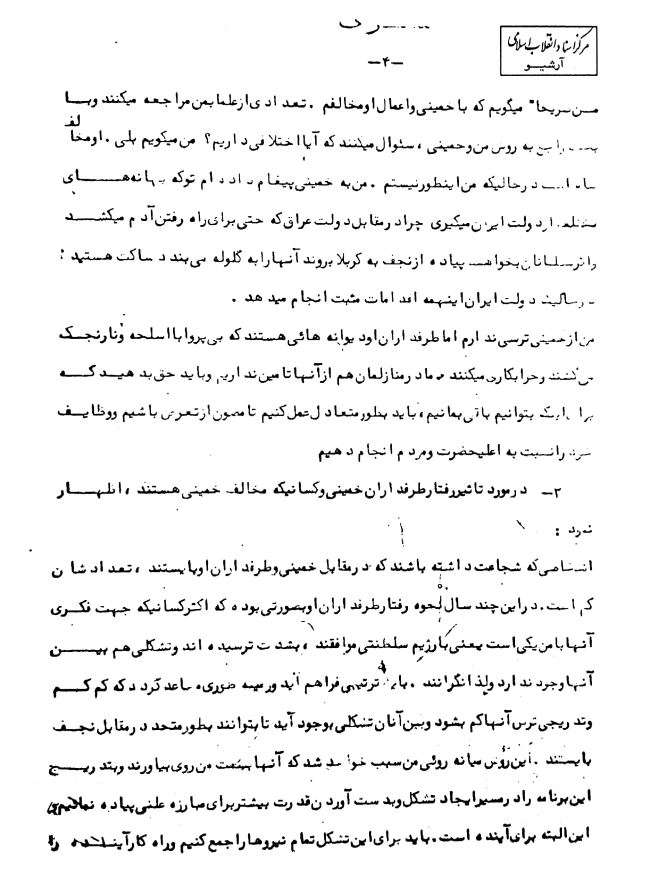 مرکز اسناد انقلاب اسلامی
آرشیو
-۴-
من صریحا" میگویم که با خمینی و اعمال او مخالفم . تعدادی از علما بمن مراجعه میکنند و با
راجع به روش من و خمینی ، سئوال میکنند که آیا اختلافی داریم ؟ من میگویم بلی . او مخالف
است در حالیکه من اینطور نیستم . من به خمینی پیغام دادم تو که بهانه های
مختلف از دولت ایران میگیری چرا در مقابل دولت عراق که حتی برای راه رفتن آدم میکشد
و اگر مسلمانان بخواهند پیاده از نجف به کربلا بروند آنها را به گلوله می بندد ساکت هستید ؛
در حالیکه دولت ایران اینهمه اقدامات مثبت انجام میدهد .
من از خمینی ترسی ندارم اما طرفداران او دیوانه هائی هستند که بی پروا با اسلحه و نارنجک
می کشند و خرابکاری میکنند ما در منازلمان هم از آنها تامین نداریم و باید حق بدهید که
برای اینکه بتوانیم باقی بمانیم ، باید بطور متعادل عمل کنیم تا مصون از تعرض باشیم و وظایف
خود را نسبت به اعلیحضرت و مردم انجام دهیم
۲- در مورد تاثیر رفتار طرفداران خمینی و کسانیکه مخالف خمینی هستند ، اظهار
نمود :
اشخاصی که شجاعت داشته باشند که در مقابل خمینی و طرفداران او بایستند ، تعدادشان
کم است . در این چند سال نحوه رفتار طرفداران او بصورتی بوده که اکثر کسانیکه جهت فکری
آنها با من یکی است یعنی با رژیم سلطنتی موافقند ، بشدت ترسیده اند و تشکلی هم بین
آنها وجود ندارد ولذا نگرانند . باید ترتیبی فراهم آید و زمینه طوری مساعد گردد که کم کم
و تدریجی ترس آنها کم بشود و بین آنان تشکلی بوجود آید تا بتوانند بطور متحد در مقابل نجف
بایستند . این روش میانه روئی من سبب خواهد شد که آنها بسمت من روی بیاورند و بتدریج
این برنامه را در مسیر ایجاد تشکل و بدست آوردن قدرت بیشتر برای مبارزه علنی پیاده نمائیم
این البته برای آینده است . باید برای این تشکل تمام نیروها را جمع کنیم و راه کار آینده را